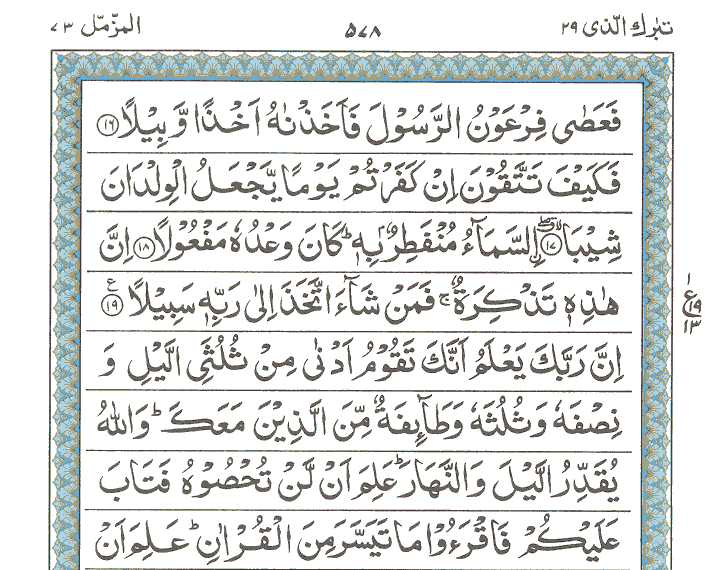 تبٰرك الّذى ٢٩ ٥٧٨ المزّمّل ٧٣
فَعَصٰى فِرْعَوْنُ الرَّسُوْلَ فَاَخَذْنٰهُ اَخْذًا وَّبِيْلًا ١٦
فَكَيْفَ تَتَّقُوْنَ اِنْ كَفَرْتُمْ يَوْمًا يَّجْعَلُ الْوِلْدَانَ
شِيْبَا ١٧ۖ اِۨلسَّمَآءُ مُنْفَطِرٌۢ بِهٖؕ كَانَ وَعْدُهٗ مَفْعُوْلًا ١٨ اِنَّ
هٰذِهٖ تَذْكِرَةٌۚ فَمَنْ شَآءَ اتَّخَذَ اِلٰى رَبِّهٖ سَبِيْلًا ١٩ ع
١ ع ١٩ ١٣
اِنَّ رَبَّكَ يَعْلَمُ اَنَّكَ تَقُوْمُ اَدْنٰى مِنْ ثُلُثَىِ الَّيْلِ وَ
نِصْفَهٗ وَثُلُثَهٗ وَطَآٮِٕفَةٌ مِّنَ الَّذِيْنَ مَعَكَؕ وَاللّٰهُ
يُقَدِّرُ الَّيْلَ وَالنَّهَارَؕ عَلِمَ اَنْ لَّنْ تُحْصُوْهُ فَتَابَ
عَلَيْكُمْ فَاقْرَءُوْا مَا تَيَسَّرَ مِنَ الْقُرْاٰنِؕ عَلِمَ اَنْ